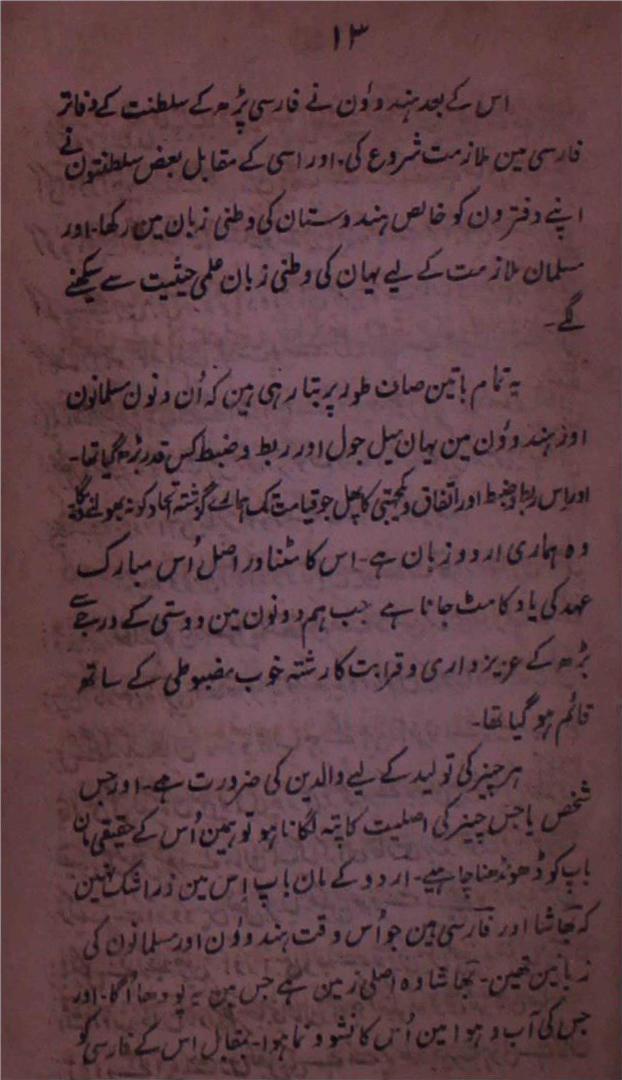 ۱۳
اس کے بعد ہندوؤن نے فارسی پڑھ کے سلطنت کے دفاتر
فارسی مین ملازمت شروع کی۔ اور اسی کے مقابل بعض سلطنتون نے
اپنے دفترون کو خالص ہندوستان کی وطنی زبان مین رکھا۔ اور
مسلمان ملازمت کے لیے یہان کی وطنی زبان علمی حیثیت سے سیکھنے
لگے۔
یہ تمام باتین صاف طور پر بتا رہی ہین کہ اُن دنون مسلمانون
اور ہندوؤن مین یہان میل جول اور ربط و ضبط کس قدر بڑھ گیا تھا۔
اور اِس ربط و ضبط اور اتفاق و یکجہتی کا پھل جو قیامت تک ہمارے گزشتہ اتحاد کو نہ بھولنے دیگا
وہ ہماری اردو زبان ہے۔ اس کا مٹنا دراصل اُس مبارک
عہد کی یاد کا مٹ جانا ہے جب ہم دونون مین دوستی کے درجے سے
بڑھ کے عزیز داری و قرابت کا رشتہ خوب مضبوطی کے ساتھ
قائم ہو گیا تھا۔
ہر چیز کی تولید کے لیے والدین کی ضرورت ہے۔ اور جس
شخص یا جس چیز کی اصلیت کا پتہ لگانا ہو تو ہمین اُس کے حقیقی مان
باپ کو ڈھونڈھنا چاہیے۔ اردو کے مان باپ اِس مین ذرا شک نہین
کہ بھاشا اور فارسی ہین جو اُس وقت ہندوؤن اور مسلمانون کی
زبانین تھین۔ بھاشا وہ اصلی زمین ہے جس مین یہ پودھا اُگا۔ اور
جس کی آب و ہوا مین اُس کا نشو و نما ہوا۔ بمقابل اس کے فارسی کو